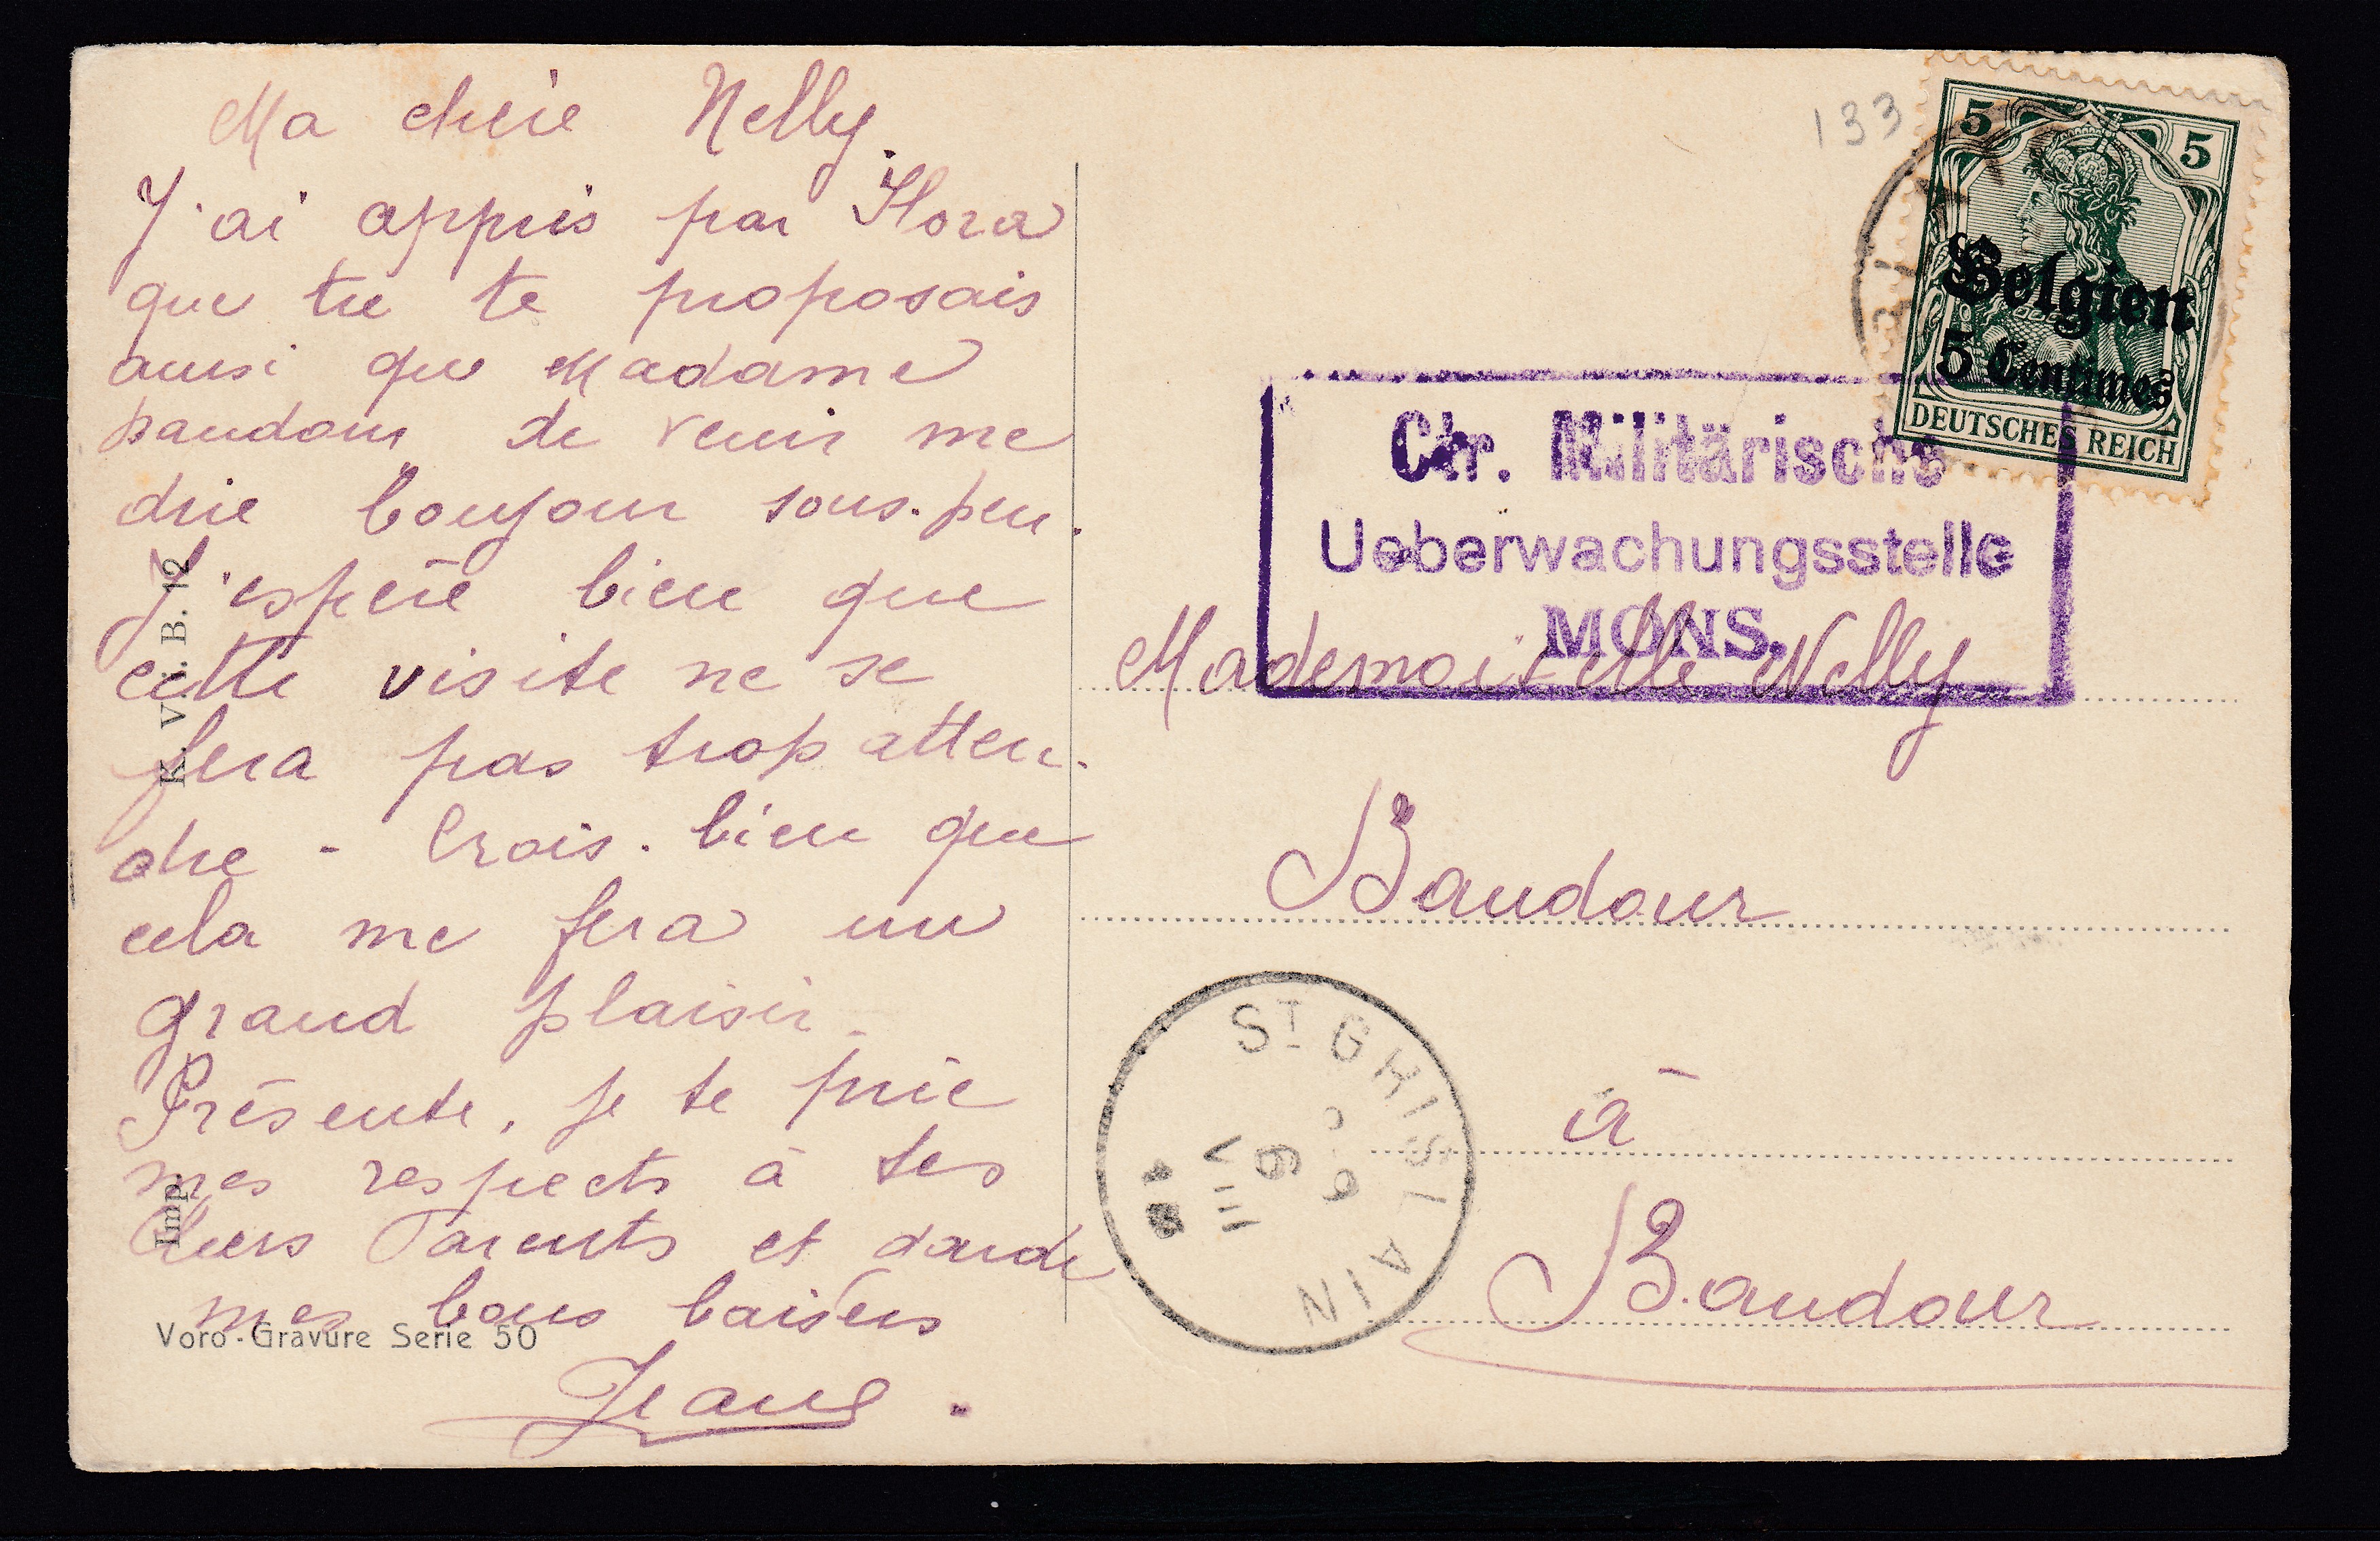 Ma chère Nelly.
J'ai appris par Flora
que tu te proposais
aussi que Madame
Baudour de venir me
dire bonjour sous-peu.
J'espère bien que
cette visite ne se
fera pas trop atten-
dre - Crois-bien que
cela me fera un
grand plaisir.
Présente, je te prie
mes respects à tes
chers Parents et garde
mes bons baisers
Jeanne.
K. V. i. B. 12
Imp
Voro-Gravure Serie 50
133
5 5
Belgien
5 Centimes
DEUTSCHES REICH
Ctr. Militärische
Ueberwachungsstelle
MONS.
Mademoiselle Nelly
Baudour
à
Baudour
ST GHISLAIN
VIII